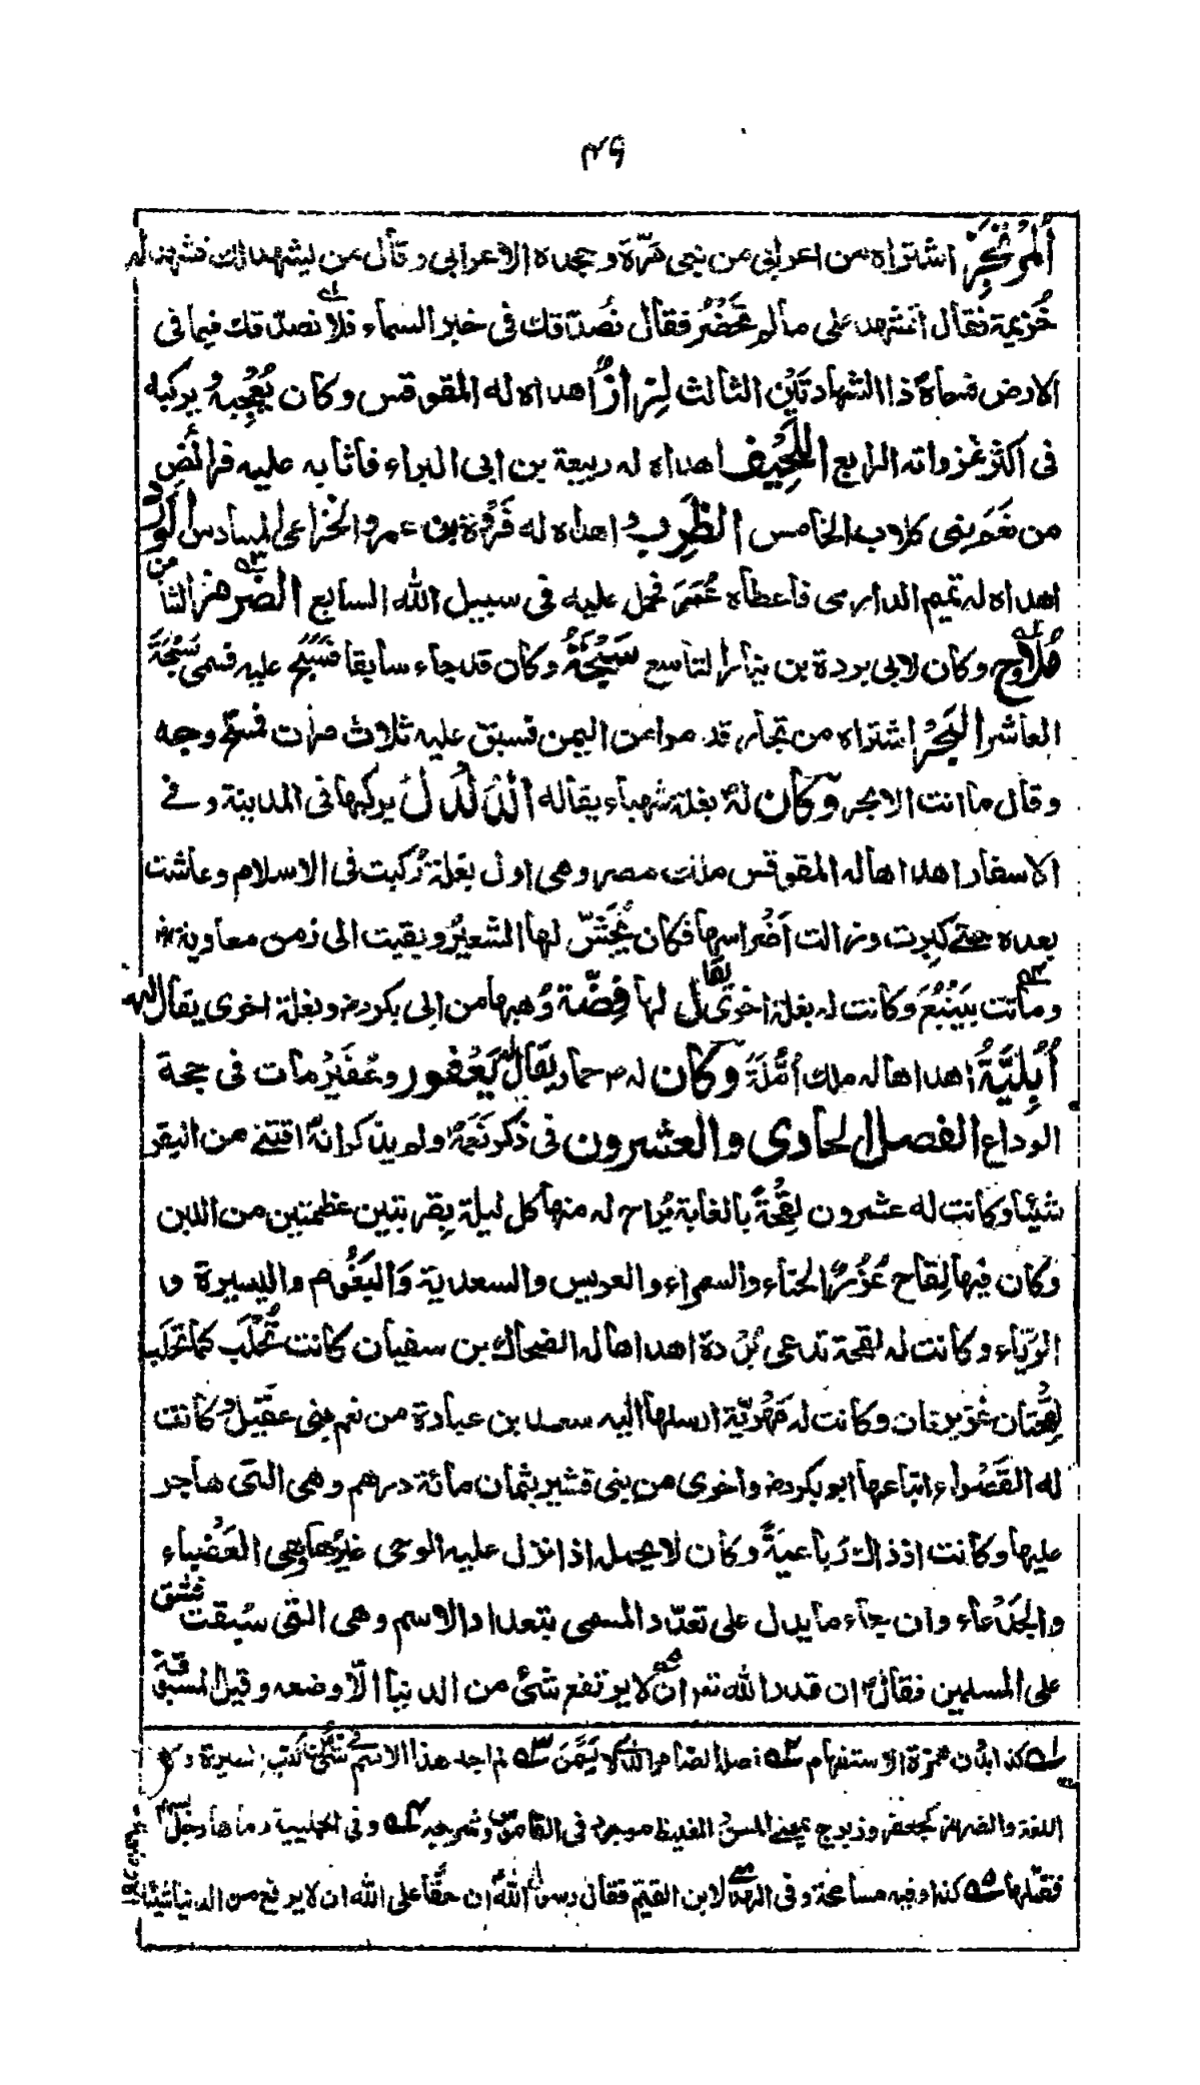 ٤٩
اَلْمُرْتَجِزُ اشتراه من اعرابي من بنى مُرّة وجحده الاعرابى وقال من يشهد لك فشهد له
خُزيمة فقال اتشهد على مالم تحضُر فقال نُصدّقك فى خبر السماء فلا نصدّقك فيما فى
الارض فسماه ذا الشهادتَيْن الثالث لِزازٌ اهداه له المقوقس وكان يُعْجِبهُ يركبه
فى اكثر غزواته الرابع اللَّحِيْف اهداه له ربيعة بن ابى البراء فاثابه عليه فرائض
من نعَم بنى كلاب الخامس الظَرِب اهداه له فَرْوة بن عمرو الخزاعى السادس الورد
اهداه له تميم الدارمى فاعطاه عُمَرَ فحمل عليه فى سبيل الله السابع الضرهز الثامن
مُلاوح وكان لابى بردة بن نيار التاسع سَبْحَةُ وكان قد جاء سابقا فسَبَّح عليه فسمى سَبْحَةَ
العاشر البَحْرُ اشتراه من تجار قدموا من اليمن فسبق عليه ثلاث مرات فمسح وجهه
وقال ما انت الا بحر وكان لهٗ بغلة شهباء يقال له الدُّلْدُلُ يركبها فى المدينة وفى
الاسفار اهداها له المقوقس ملك مصر وهى اول بغلة رُكبت فى الاسلام وعاشت
بعده حتے كبرت وزالت اَضْراسها فكان يُجَشّ لها الشعيرُ وبقيت الى زمن معاوية
وماتت بيَنْبُعَ وكانت له بغلة اخرى يقال لها فِضّة وَهبها من ابى بكرؓ وبغلة اخرى يقال لها
اَيْلِيَّةُ اهداها له ملك اَيْلَةَ وكان لهؐ حمار يقال له يَعْفور وعُفَيْرُ مات فى حجة
الوداع الفصل الحادى والعشرون فى ذكر نَعَمِهٖ ولم يذكر انهٗ اقتنے من البقر
شيئا وكانت له عشرون لِقْحَةً بالغابة يُراح له منها كل ليلة بِقربتين عظمتين من اللبن
وكان فيها لِقاح غُزُرٌ الحناء والسمراء والعريس والسعدية وَالبَغُوم واليسيرة و
الرَيّاء وكانت له لقحة تدعى بُرْدة اهداها له الضحاك بن سفيان كانت تُحلَب كما تُحلَب
لِقْحَتان غزيرتان وكانت له مَهْرِيّة ارسلها اليه سعد بن عبادة من نعم بنى عقيل وكانت
له القَصْواء ابتاعها ابو بكرؓ واخرى من بنى قشير بثمان مائة درهم وهى التى هاجر
عليها وكانت اذ ذاك رَباعِيَةً وكان لا يحمله اذا نزل عليه الوحى غيرُها وهى العَضْباء
والجَدْعاء وان جاء ما يدل على تعدّد المسمى بتعداد الاسم وهى التى سُبقت فشق
على المسلمين فقالؐ ان قدر الله تعہ ان لا يرتفع شئ من الدنيا الّا وضعه وقيل المسبوقة
لـه كذا بدون همزة الاستفهام لـه ... لـه لم اجد هذا الاسم فى شئ من كتب السيرة و
اللغة والضرهز كجعفر وزبرج ... القاموس وشرحه لـه وفى الحلبية ...
فقبلها لـه كذا وفيه مسامحة وفى الهدى لابن القيم فقال رسول اللهؐ ان حقًّا على الله ان لا يرفع من الدنيا شيئا